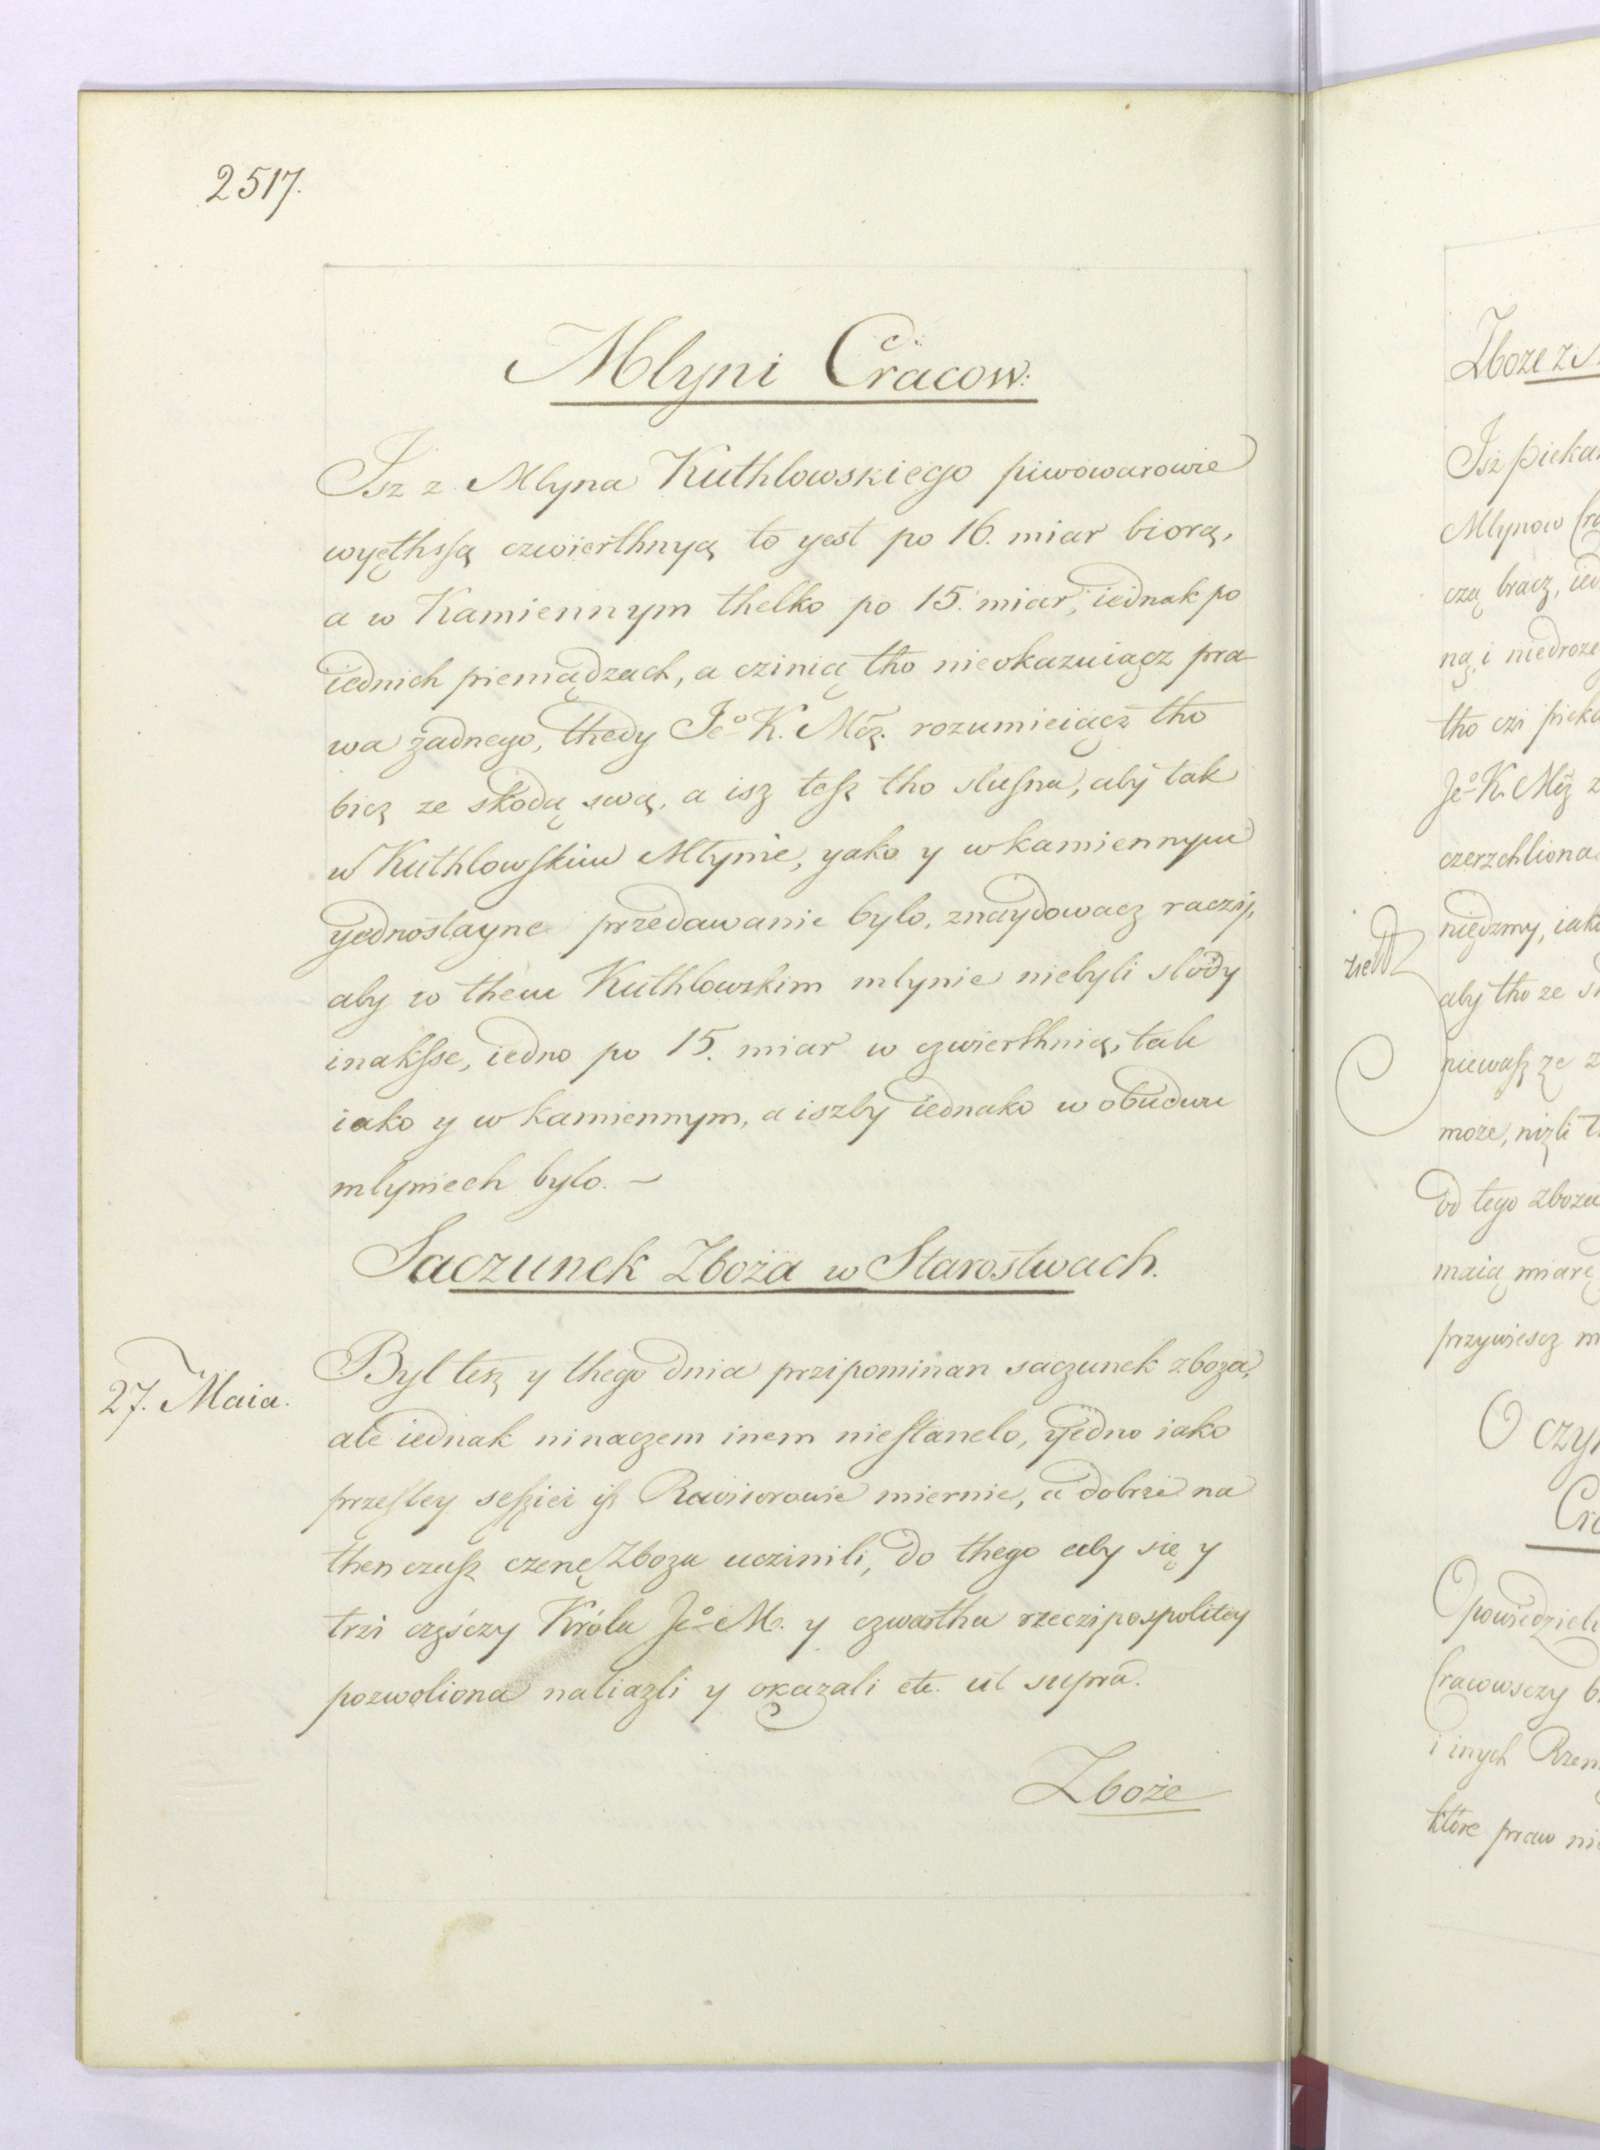 2517.
Mlyni Cracow:
Isz z Mlyna Kuthlowskiego piwowarowie
wyęthssą czwierthnyą to yest po 16. miar biorą,
a w Kamiennym thelko po 15. miar, iednak po
iednich pieniądzach, a czinią tho nieokazuiącz pra-
wa żadnego, thedy Jeº K. Mcz. rozumieiącz tho
bicz ze skodą swą, a isz tesz tho slusna, aby tak
w Kuthlowskim Młynie, yako y w kamiennym
yednostayne przedawanie bylo, znaydowacz raczij,
aby w them Kuthlowskim mlynie niebyli slody
inaksse, iedno po 15. miar w czwierthnią, tak
iako y w kamiennym, a iszby iednako w obudwu
mlyniech bylo. —
Saczunek Zboża w Starostwach.
27. Maia.
Byl tesz y thego dnia przipominan saczunek zboża,
ale iednak ninaczem inem niestanelo, yedno iako
przesley sessiei isz Rewisorowie miernie, a dobrze na
then czass czenę Zboża uczinili, do thego aby się y
trzi częśczy Króla Jeº M. y czwartha rzeczipospolitey
pozwoliona naliazli y okazali etc. ut supra.
Zboże
Zboze z
Isz pieka
Mlynow
czą bracz,
ną, i niedroze
tho czi pieka
Jeº K. Mcz z
czerzchliona
niędzmy, iak
aby tho ze
niewasz ze z
może, nizli
od tego zboza
maią miarę
przywiescz
O czy
Opowiedzieli
Cracowsczy
i inych Rzem
które praw